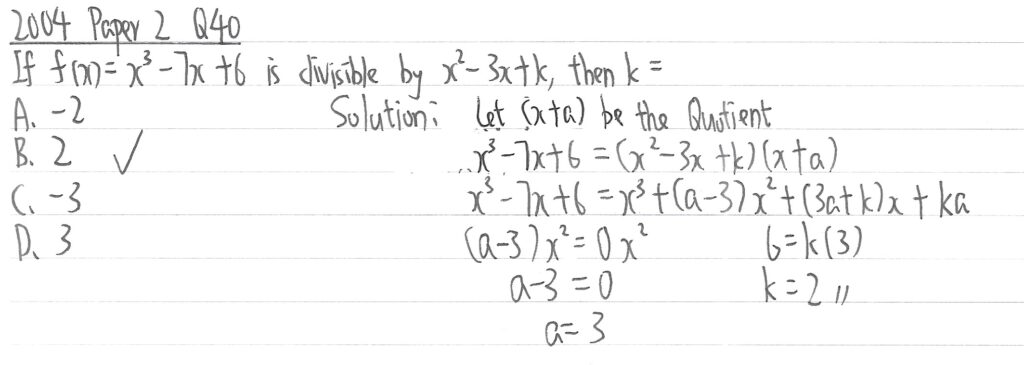 2004 Paper 2 Q40
If f(x) = x³ - 7x + 6 is divisible by x² - 3x + k, then k =
A. -2
Solution: Let (x+a) be the Quotient
B. 2 ✓
x³ - 7x + 6 = (x² - 3x + k)(x+a)
C. -3
x³ - 7x + 6 = x³ + (a-3)x² + (3a+k)x + ka
D. 3
(a-3)x² = 0x²
6 = k(3)
a-3 = 0
k = 2 //
a = 3